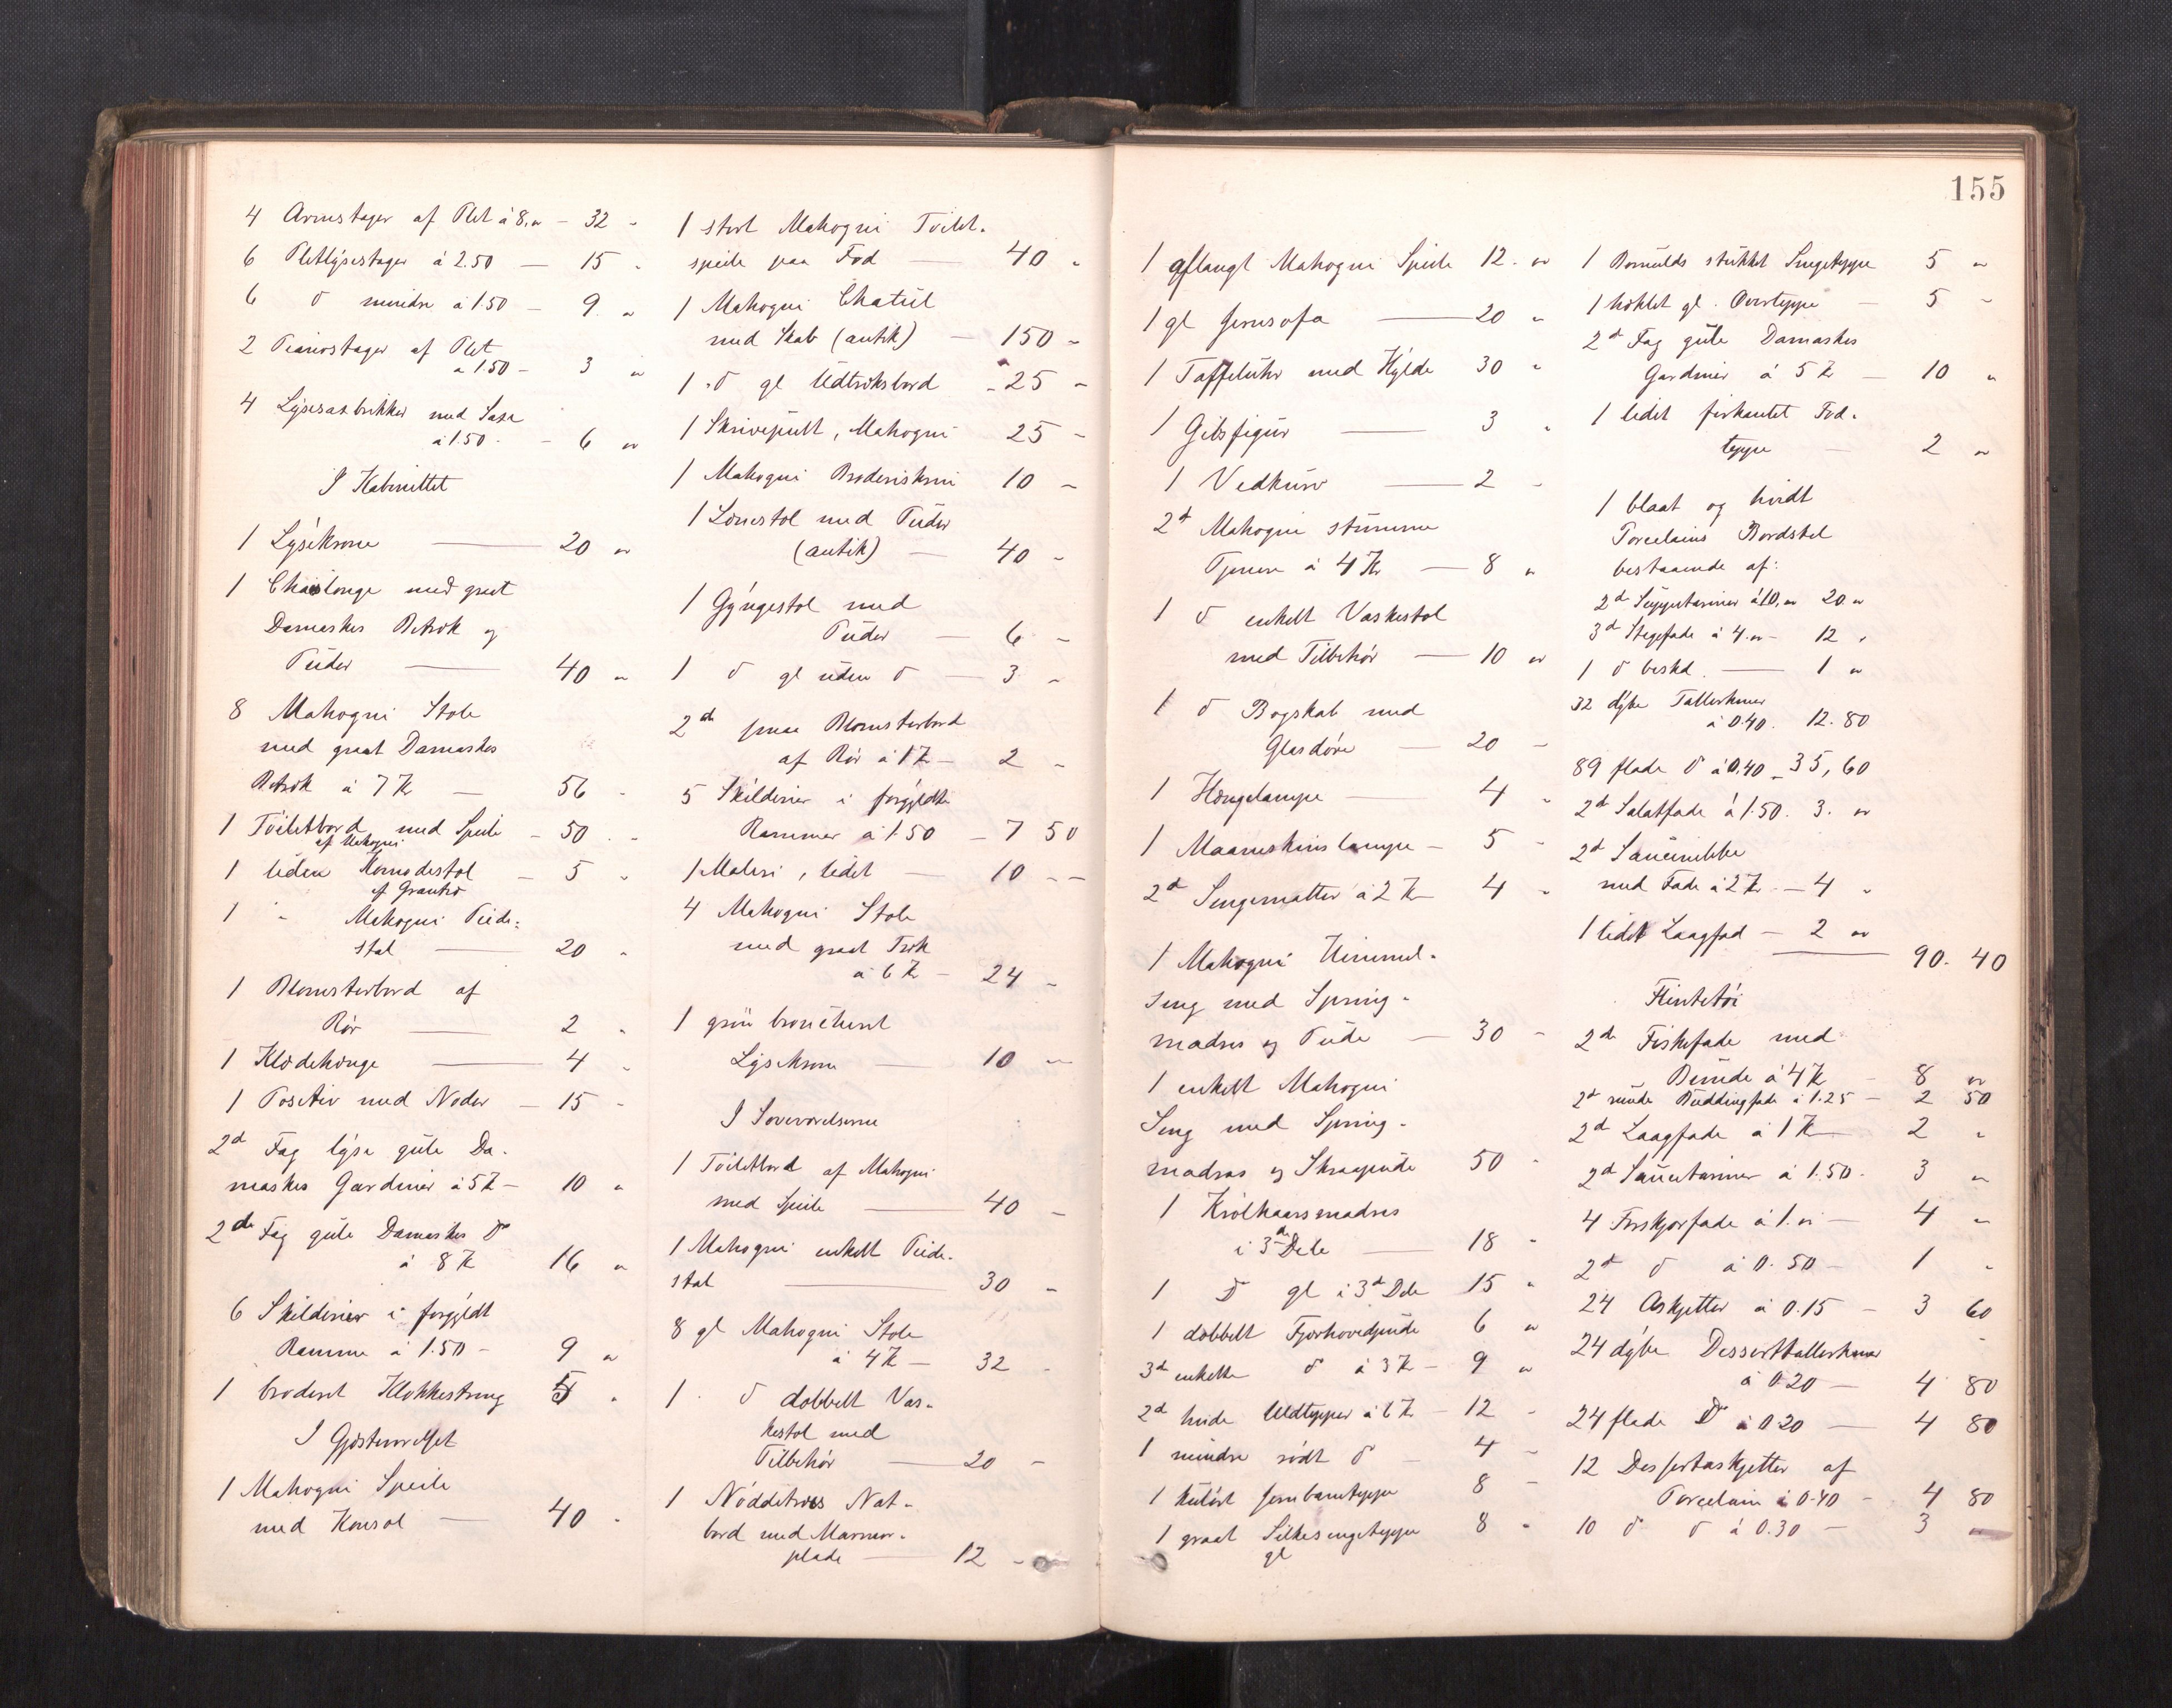 4 Armstager af Plet à 8,„ - 32 „
6 Pletlysestager à 2.50 — 15 „
6 d mindre à 1.50 - 9 „
2 Pianostager af Plet
à 1.50 - 3 „
4 Lysesaxbrikker med Saxe
à 1.50 - 6 „
I Kabinettet
1 Lysekrone — 20 „
1 Chaiselonge med grøt
Damaskes Betræk og
Puder — 40 „
8 Mahogni Stole
med grøt Damaskes
Betræk à 7 Kr — 56 „
1 Toiletbord med Speile - 50 „
af Mahogni
1 liden Komodestol - 5 „
af Grantræ
1 „ Mahogni Piede-
stal — 20 „
1 Blomsterbord af
Rør — 2 „
1 Klædehænge — 4 „
1 Positiv med Noder — 15 „
2d Fag lyse gule Da-
maskes Gardiner à 5 Kr — 10 „
2de Fag gule Damaskes do
à 8 Kr 16 „
6 Skilderier i forgyldt
Ramme à 1.50 - 9 „
1 broderet Klokkestreng 5 „
I Gjæsteværelset
1 Mahogni Speile
med Konsol — 40 „
1 stort Mahogni Toilet-
speile paa Fod — 40 „
1 Mahogni Chatul
med Skab (antik) — 150 „
1 d gl Udtræksbord - 25 „
1 Skrivepult, Mahogni 25 „
1 Mahogni Broderiskrin 10 „
1 Lænestol med Puder
(antik) — 40 „
1 Gyngestol med
Puder — 6 „
1 d gl uden d — 3 „
2de smaa Blomsterbord
af Rør à 1 Kr — 2 „
5 Skilderier i forgyldte
Rammer à 1.50 — 7 50
1 Maleri, lidet — 10 „
4 Mahogni Stole
med grøt Træk
à 6 Kr — 24 „
1 grøn bronceret
Lysekrone — 10 „
I Soveværelserne
1 Toiletbord af Mahogni
med Speile — 40 „
1 Mahogni enkelt Piede-
stal — 30 „
8 gl Mahogni Stole
à 4 Kr — 32 „
1 d dobbelt Vas-
kestol med
Tilbehør — 20 „
1 Nøddetræs Nat-
bord med Marmor-
plade — 12 „
155
1 aflangt Mahogni Speile 12 „
1 gl Jernsofa — 20 „
1 Taffeluhr med Hylde 30 „
1 Gibsfigur — 3 „
1 Vedkurv — 2 „
2d Mahogni stumme
Tjenere à 4 Kr — 8 „
1 d enkelt Vaskestol
med Tilbehør — 10 „
1 d Bogskab med
Glasdøre — 20 „
1 Hængelampe — 4 „
1 Maaneskinslampe — 5 „
2d Sengematter à 2 Kr 4 „
1 Mahogni Himmel-
seng med Spring-
madras og Pude — 30 „
1 enkelt Mahogni
Seng med Spring-
madras og Skraapude 50 „
1 Krølhaarsmadras
i 3de Dele — 18 „
1 D gl i 3d Dele 15 „
1 dobbelt Fjærhovedpude 6 „
3d enkelte d à 3 Kr - 9 „
2d hvide Uldtepper à 6 Kr - 12 „
1 mindre rødt d - 4 „
1 kulørt Jernbaneteppe 8 „
1 graat Silkesengeteppe 8 „
gl
1 Bomulds stukket Sengeteppe 5 „
1 heklet gl. Overteppe — 5 „
2d Fag gule Damaskes
Gardiner à 5 Kr — 10 „
1 lidet firkantet Fod-
teppe — 2 „
1 blaat og hvidt
Porcelains Bordstel
bestaaende af:
2d Suppeteriner à 10,„ 20 „
3d Stegefade à 4.„ - 12 „
1 d beskd. — 1 „
32 dybe Tallerkener
à 0.40. 12.80
89 flade d à 0.40 - 35,60
2d Salatfade à 1.50. 3. „
2d Saucenebbe
med Fade à 2 Kr — 4 „
1 lidet Laagfad — 2 „
— 90. 40
Flintetøi
2de Fiskefade med
Bunde à 4 Kr - 8 „
2d runde Buddingfade à 1.25 - 2 50
2d Laagfade à 1 Kr — 2 „
2d Sauceteriner à 1.50 - 3 „
4 Forskjærfade à 1.„ — 4 „
2d d à 0.50 — 1 „
24 Askjetter à 0.15 — 3 60
24 dybe Desserttallerkener
à 0.20 — 4 80
24 flade D à 0.20 — 4 80
12 Dessertaskjetter af
Porcelain à 0.40 - 4 80
10 d d à 0.30 — 3 „